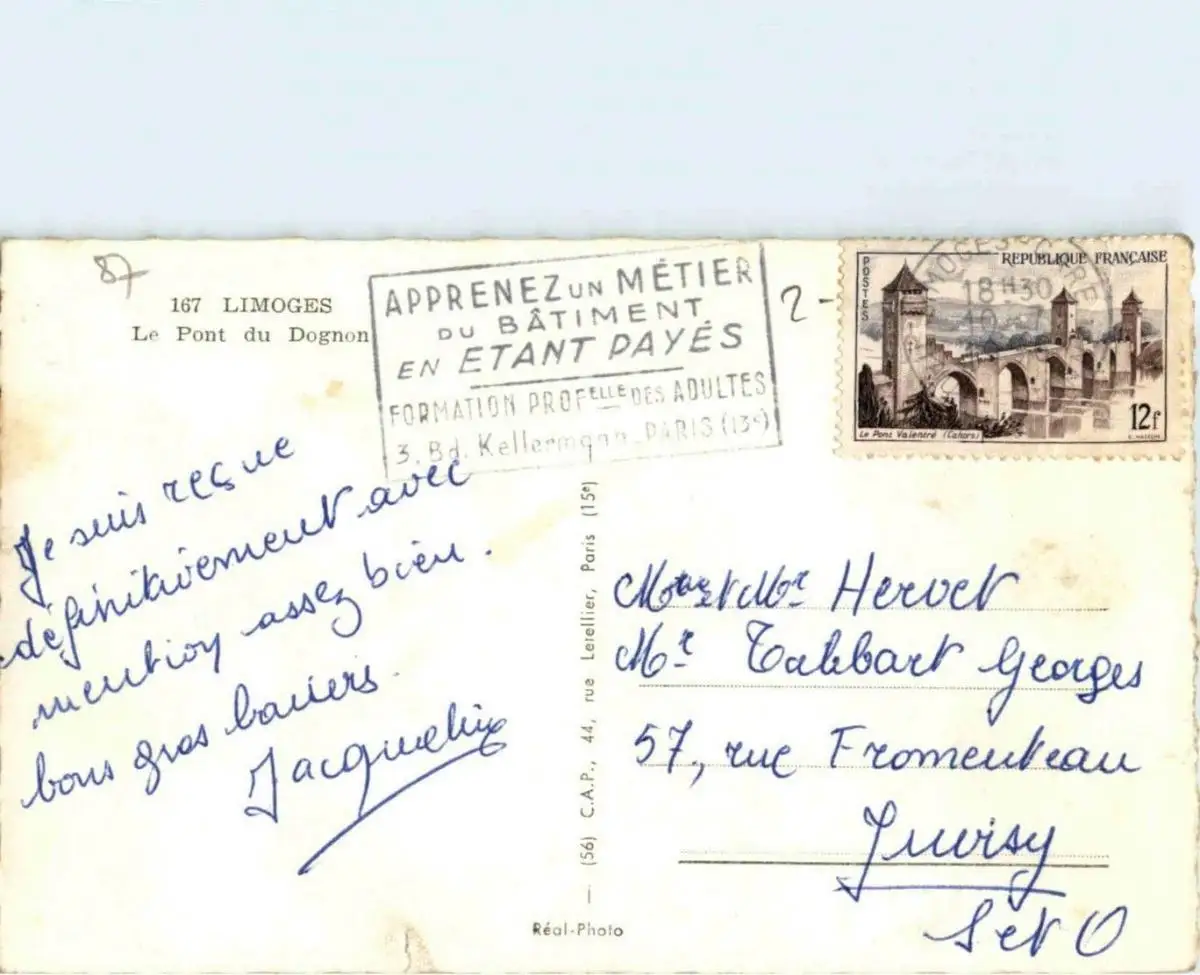 87
167 LIMOGES
Le Pont du Dognon
APPRENEZ UN MÉTIER
DU BÂTIMENT
EN ETANT PAYÉS
FORMATION PROFELLE DES ADULTES
3, Bd. Kellermann - PARIS (13e)
2-
LIMOGES GARE
18H30
10 - 7
POSTES
REPUBLIQUE FRANÇAISE
12f
Le Pont Valentré (Cahors)
Je suis reçue
définitivement avec
mention assez bien.
bons gros baisers.
Jacqueline
(56) C.A.P., 44, rue Letellier, Paris (15e)
Réal-Photo
Mr Hervet
Mr Tabbart Georges
57, rue Fromenteau
Juvisy
S et O